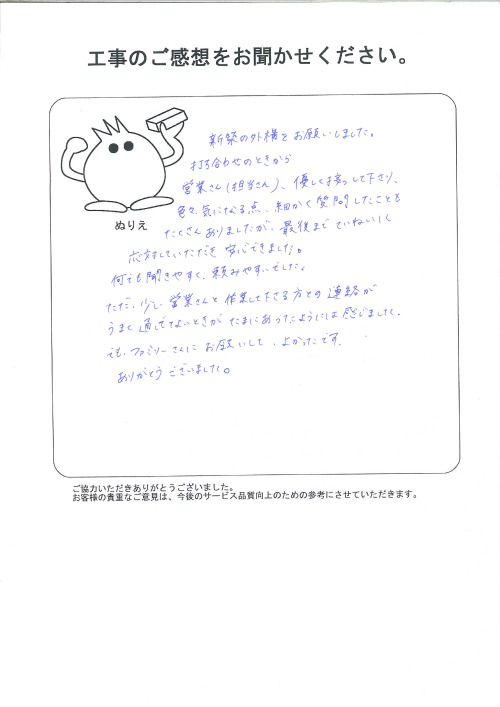 工事のご感想をお聞かせください。
新築の外構をお願いしました。
打ち合わせのときから
営業さん(担当さん)、優しく接して下さり、
色々気になる点、細かく質問したことも
たくさんありましたが、最後までていねいに
応対していただき安心できました。
何でも聞きやすく、頼みやすいでした。
ただ、少し営業さんと作業して下さる方との連絡が
うまく通じてないときがたまにあったようには感じました。
でも、ファミリーさんにお願いして、よかったです。
ありがとうございました。
ぬりえ
ご協力いただきありがとうございました。
お客様の貴重なご意見は、今後のサービス品質向上のための参考にさせていただきます。